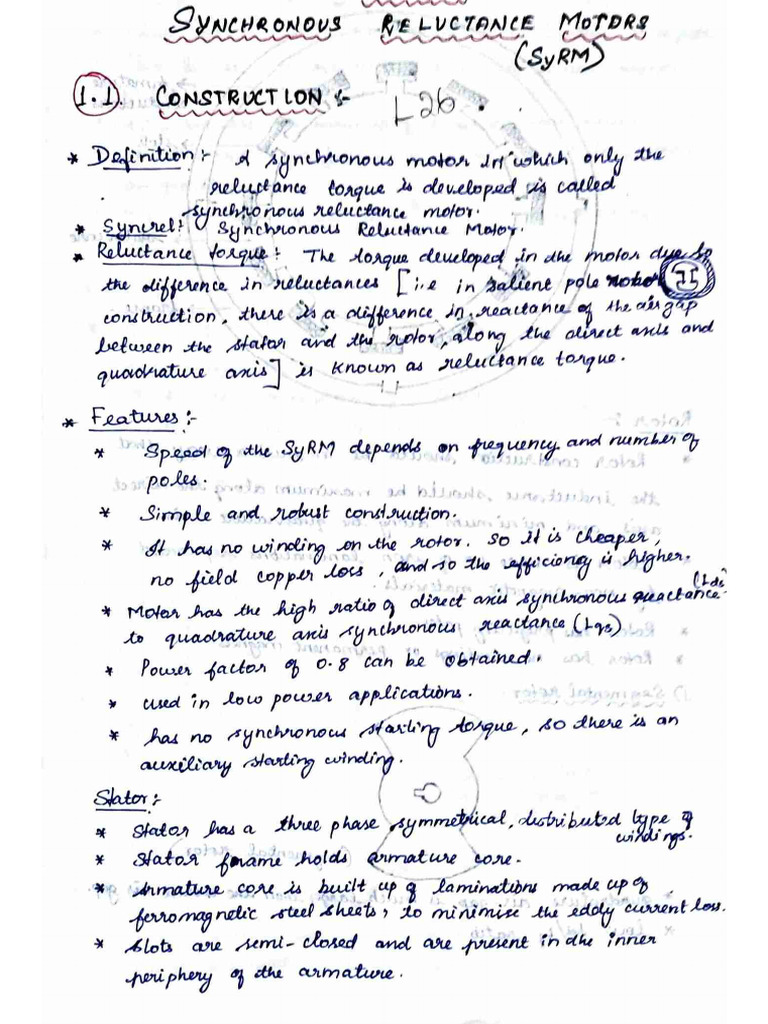 SYNCHRONOUS RELUCTANCE MOTORS
(SyRM)
1.1. CONSTRUCTION :- L26.
* Definition :- A synchronous motor in which only the
reluctance torque is developed is called
synchronous reluctance motor.
* Syncrel : Synchronous Reluctance Motor.
* Reluctance torque : The torque developed in the motor due to
the difference in reluctances [i.e in salient pole rotor
construction, there is a difference in reactance of the air gap
between the stator and the rotor, along the direct axis and
quadrature axis] is known as reluctance torque.
* Features :-
* Speed of the SyRM depends on frequency and number of
poles.
* Simple and robust construction.
* It has no winding on the rotor. So it is cheaper,
no field copper loss, and so the efficiency is higher.
* Motor has the high ratio of direct axis synchronous reactance (Lds)
to quadrature axis synchronous reactance (Lqs)
* Power factor of 0.8 can be obtained.
* used in low power applications.
* has no synchronous starting torque, so there is an
auxiliary starting winding.
Stator :-
* Stator has a three phase, symmetrical, distributed type of
windings.
* Stator frame holds armature core.
* Armature core is built up of laminations made up of
ferromagnetic steel sheets, to minimise the eddy current loss.
* Slots are semi-closed and are present in the inner
periphery of the armature.